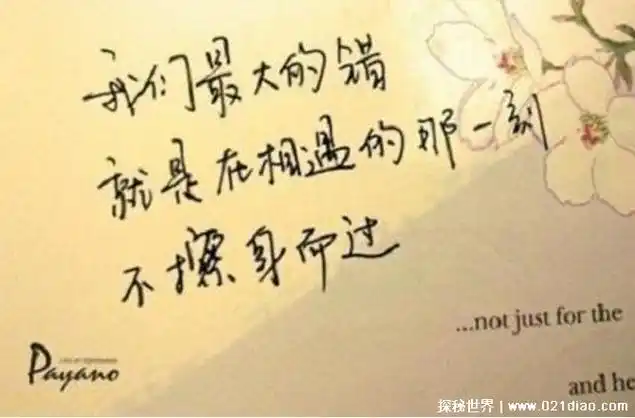 我们最大的错
就是在相遇的那一刻
不擦身而过
...not just for the
and he
Payano
探秘世界 www.021diao.com